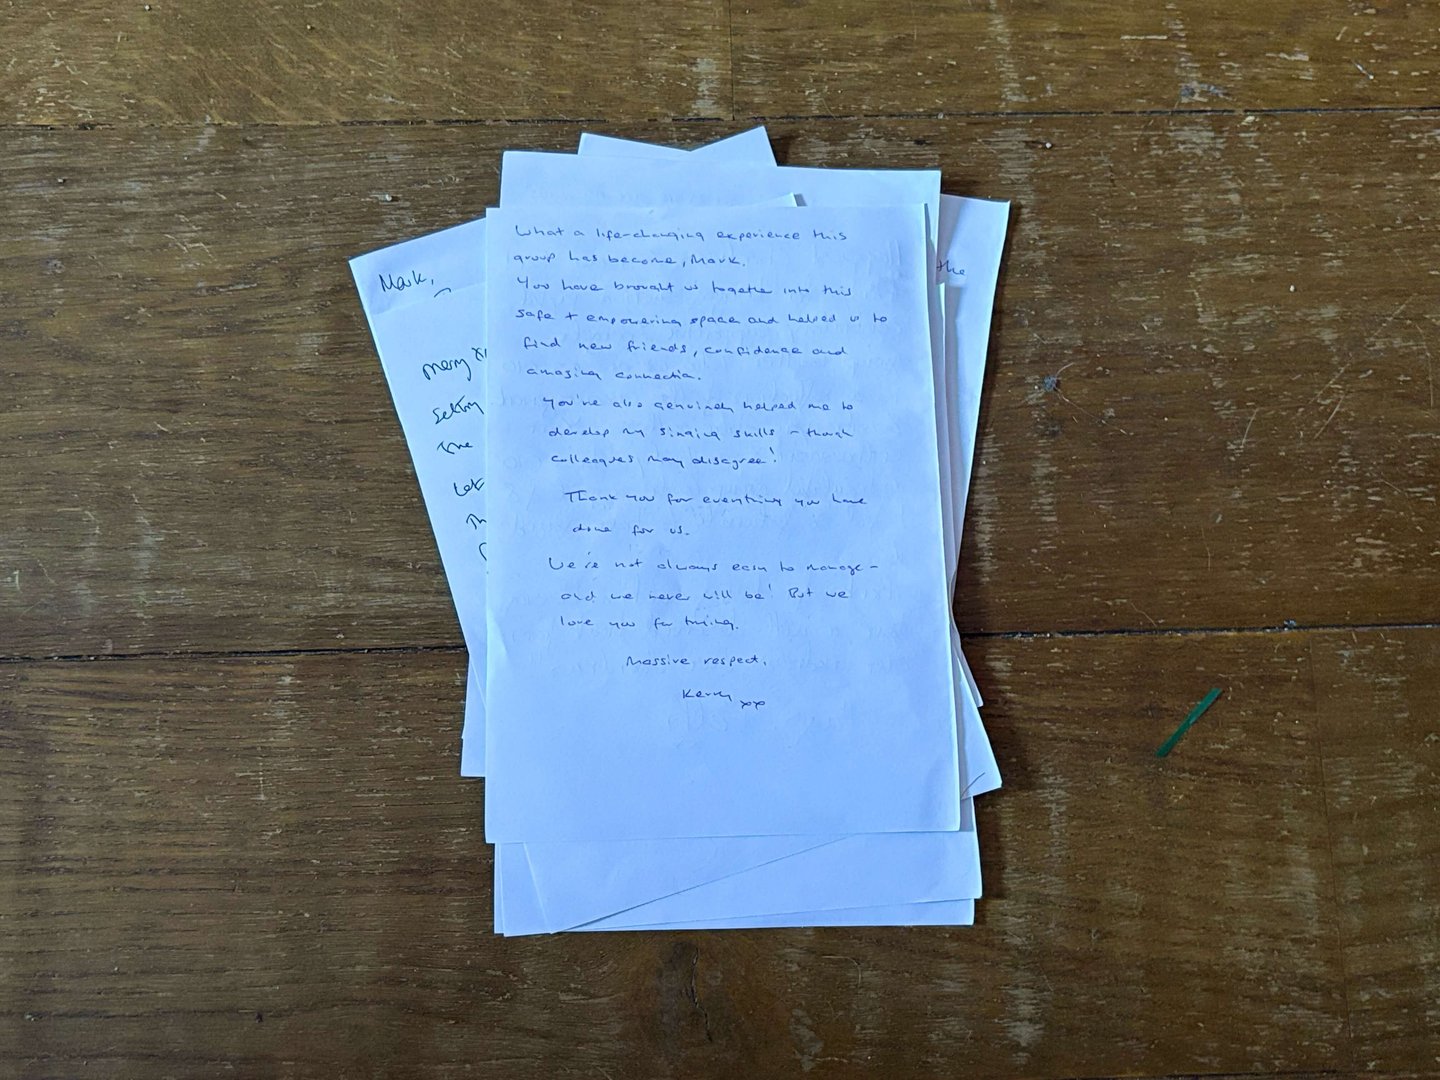 What a life-changing experience this
group has become, Mark.
You have brought us together into this
safe + empowering space and helped us to
find new friends, confidence and
amazing connection.
You've also genuinely helped me to
develop my singing skills - though
colleagues may disagree!
Thank you for everything you have
done for us.
We're not always easy to manage -
and we never will be! But we
love you for trying.
Massive respect,
Kerry xx
Mark,
Merry
setting
the
Let
the